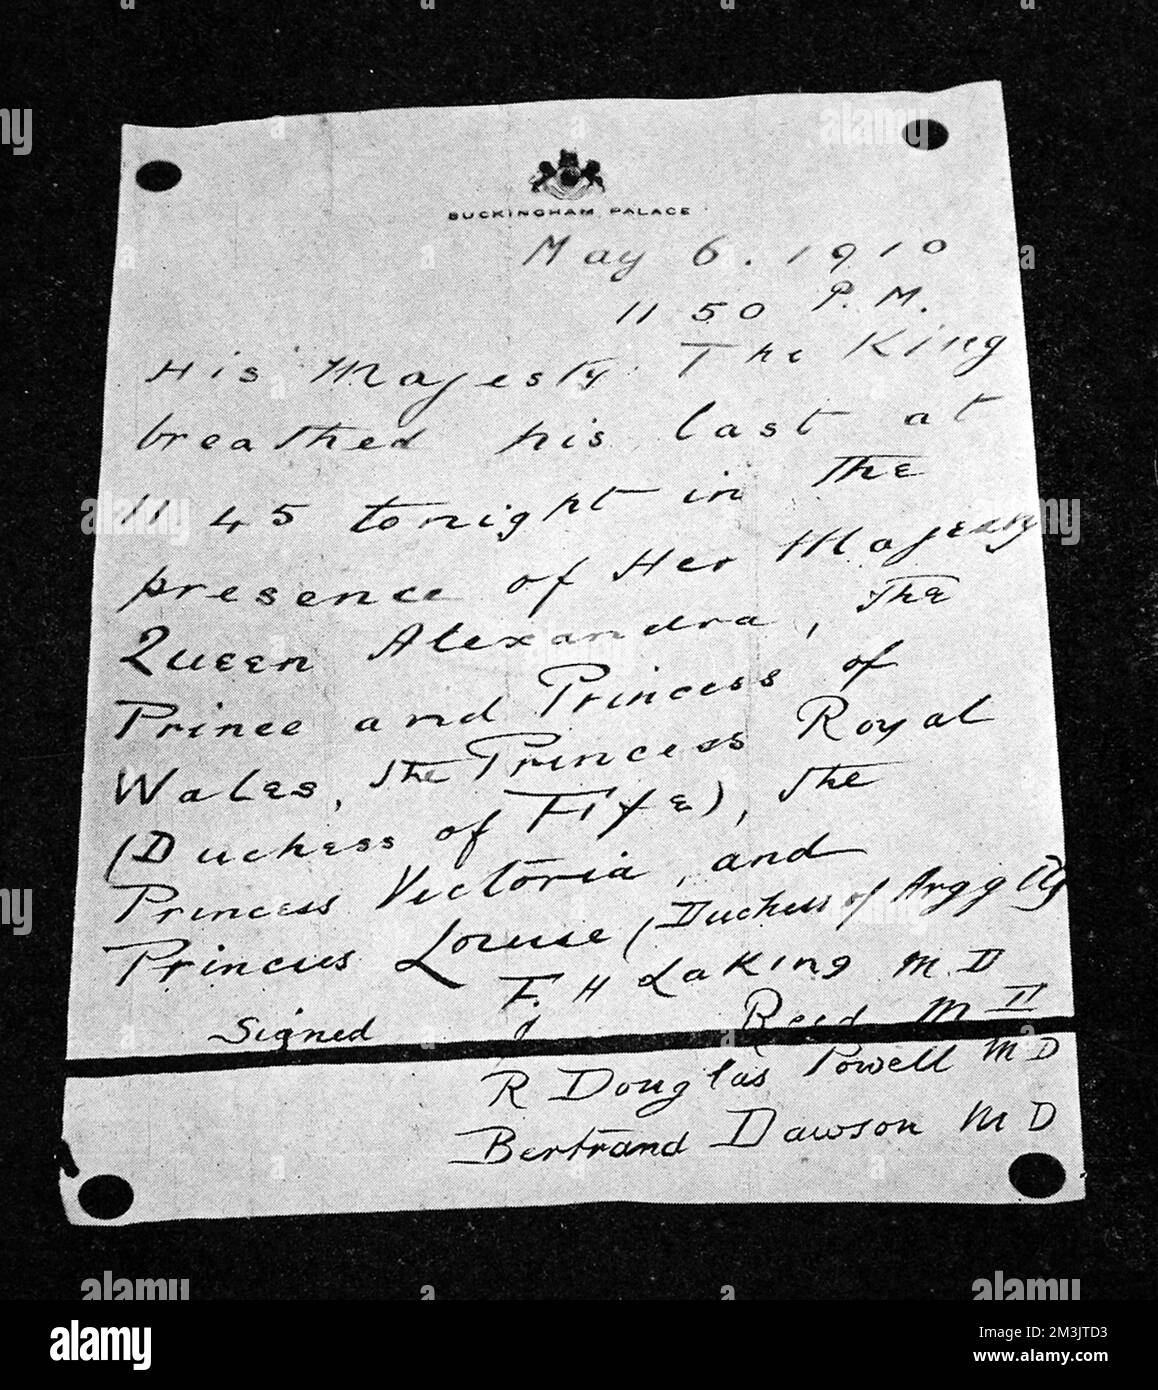 BUCKINGHAM PALACE
May 6. 1910
11 50 P.M.
His Majesty The King
breathed his last at
11 45 tonight in the
presence of Her Majesty
Queen Alexandra, the
Prince and Princess of
Wales, the Princess Royal
(Duchess of Fife), the
Princess Victoria, and
Princess Louise (Duchess of Argyll)
Signed F. H Laking M.D
Reed M D
R Douglas Powell M D
Bertrand Dawson M D
alamy
Image ID: 2M3JTD3
www.alamy.com